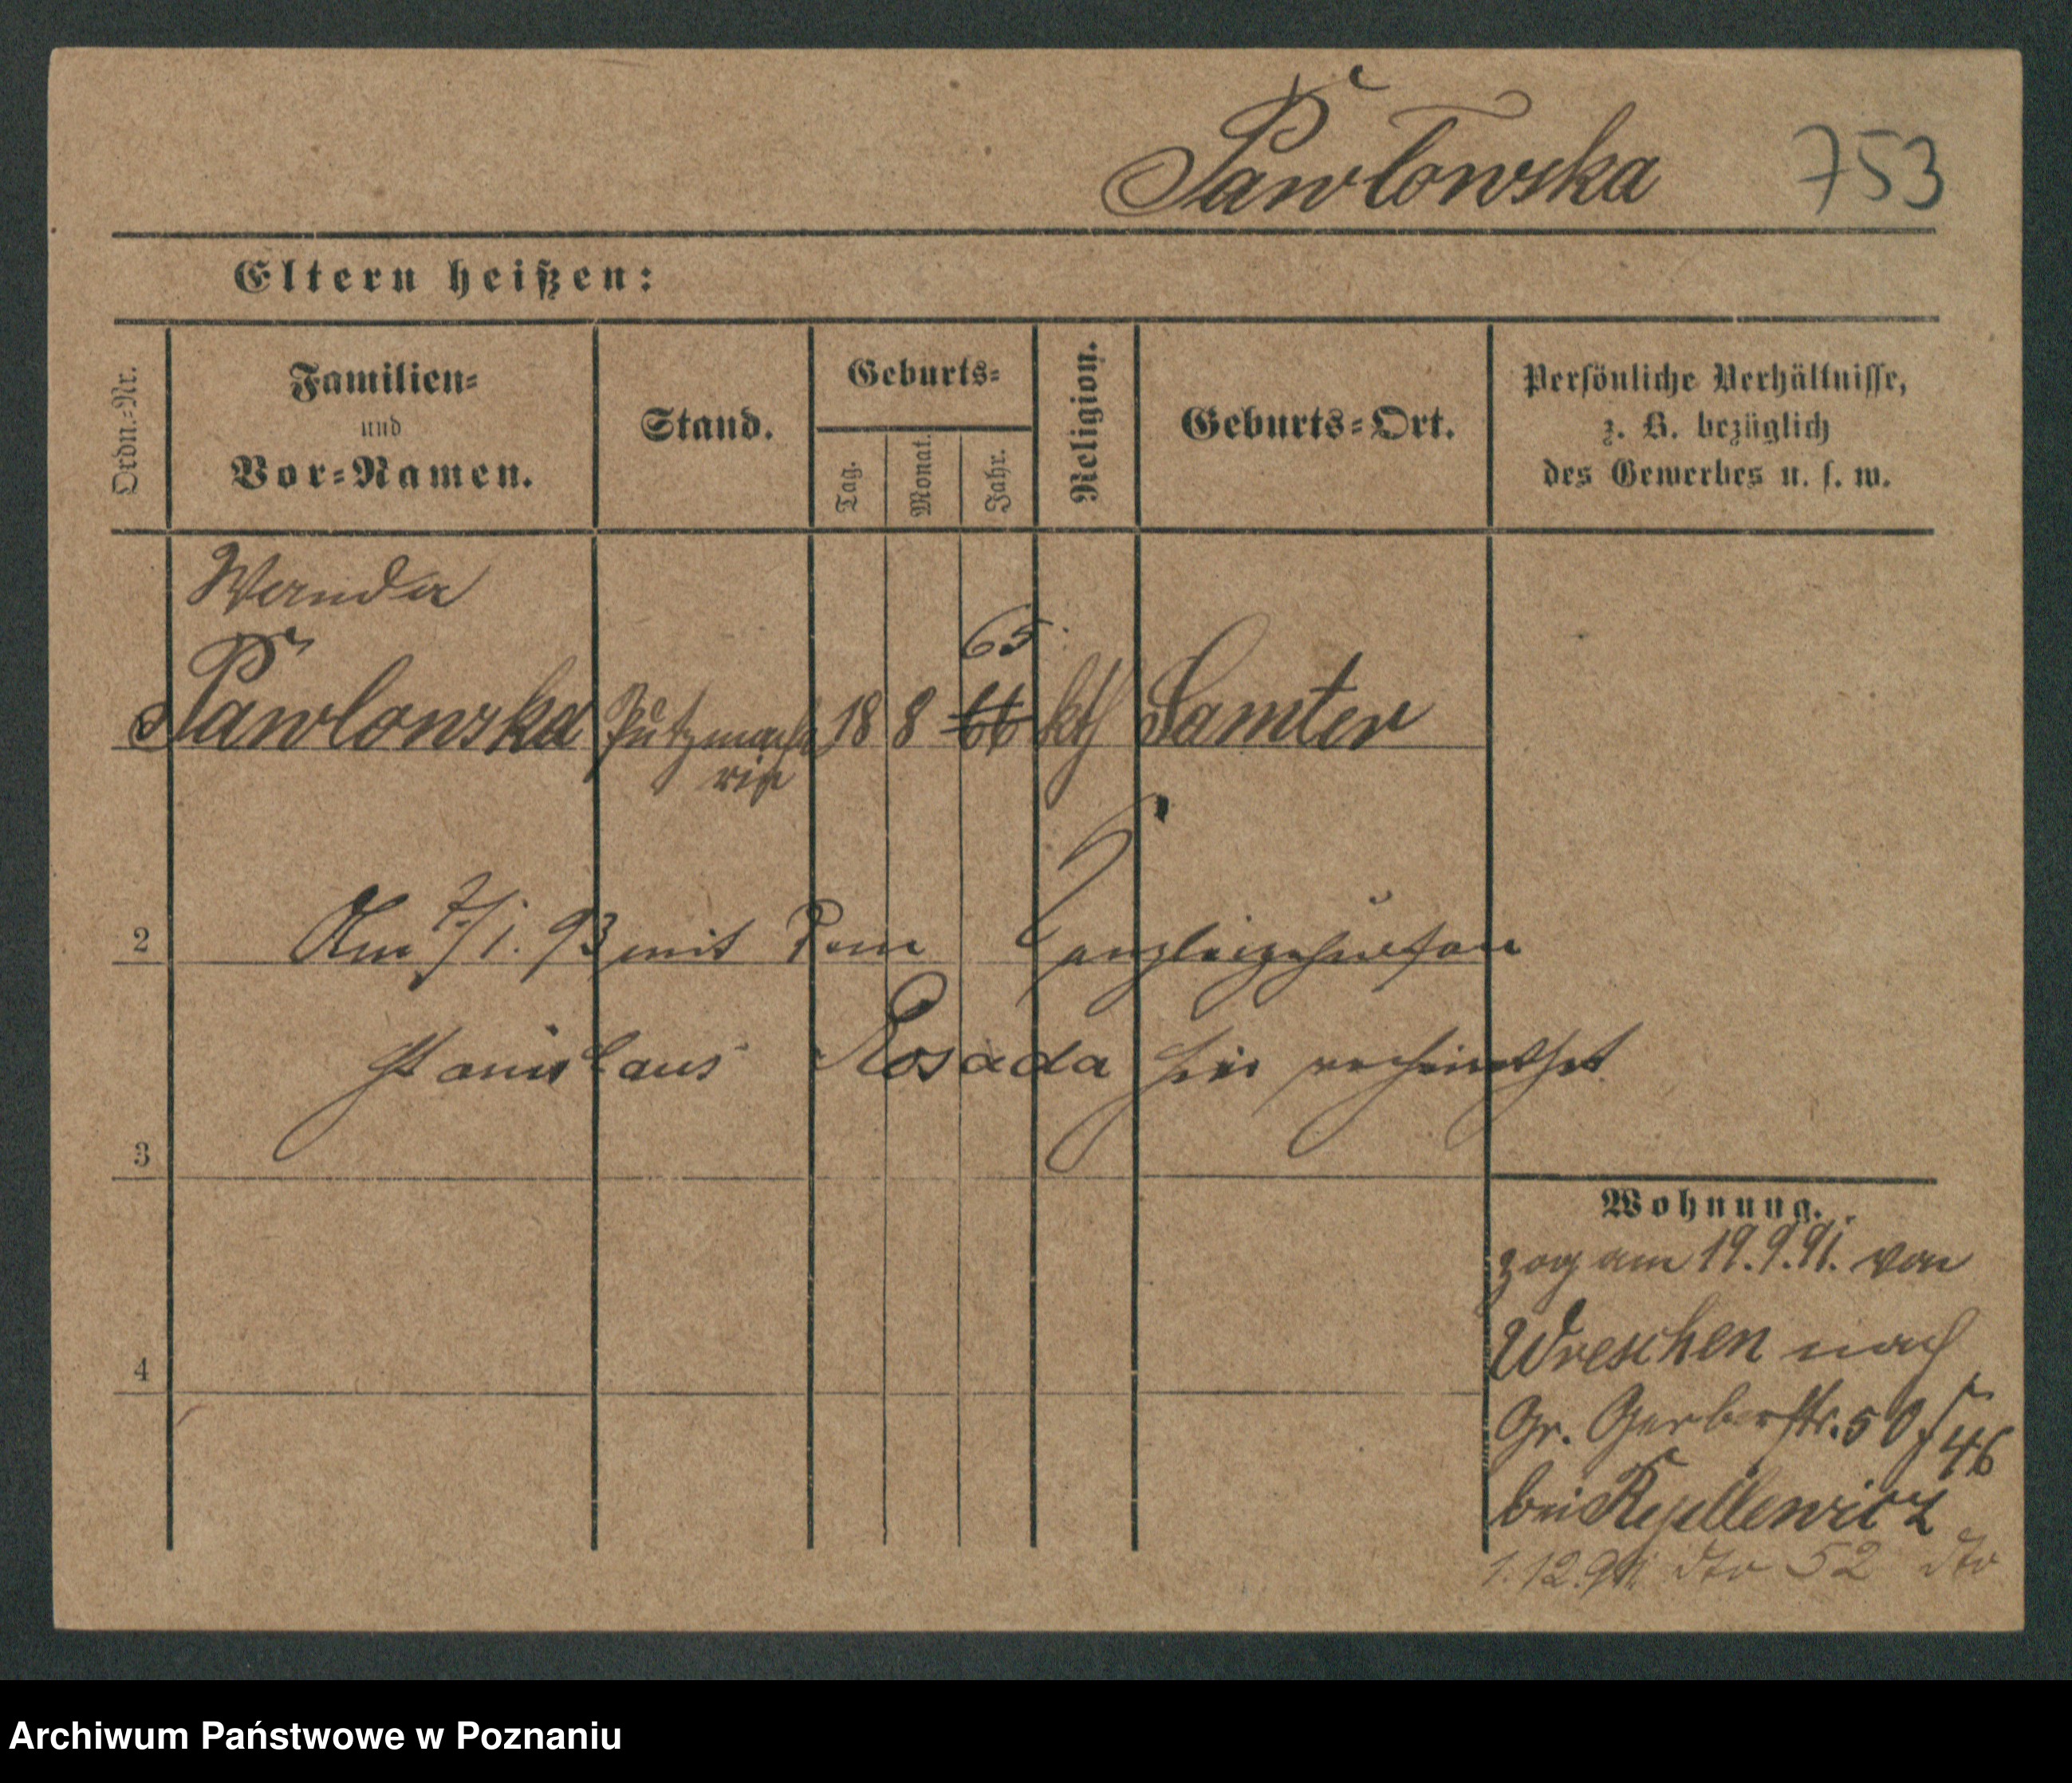 Pawlowska 753
Eltern heißen:
Ordn.=Nr.
Familien=
und
Vor=Namen.
Stand.
Geburts=
Tag.
Monat.
Jahr.
Religion.
Geburts=Ort.
Persönliche Verhältnisse,
z. B. bezüglich
des Gewerbes u. s. w.
Wanda
65
Pawlowska Putzmache 18 8 66 kth Samter
rin
2 Am 7/1. 93 mit dem Canzleigehülfen
Stanislaus Rosada hier verheirathet
3
Wohnung.
zog am 19.9.91. von
Wreschen nach
4
Gr. Gerberstr. 50 f 46
bei
1.12.91 dto 52 dto
Archiwum Państwowe w Poznaniu